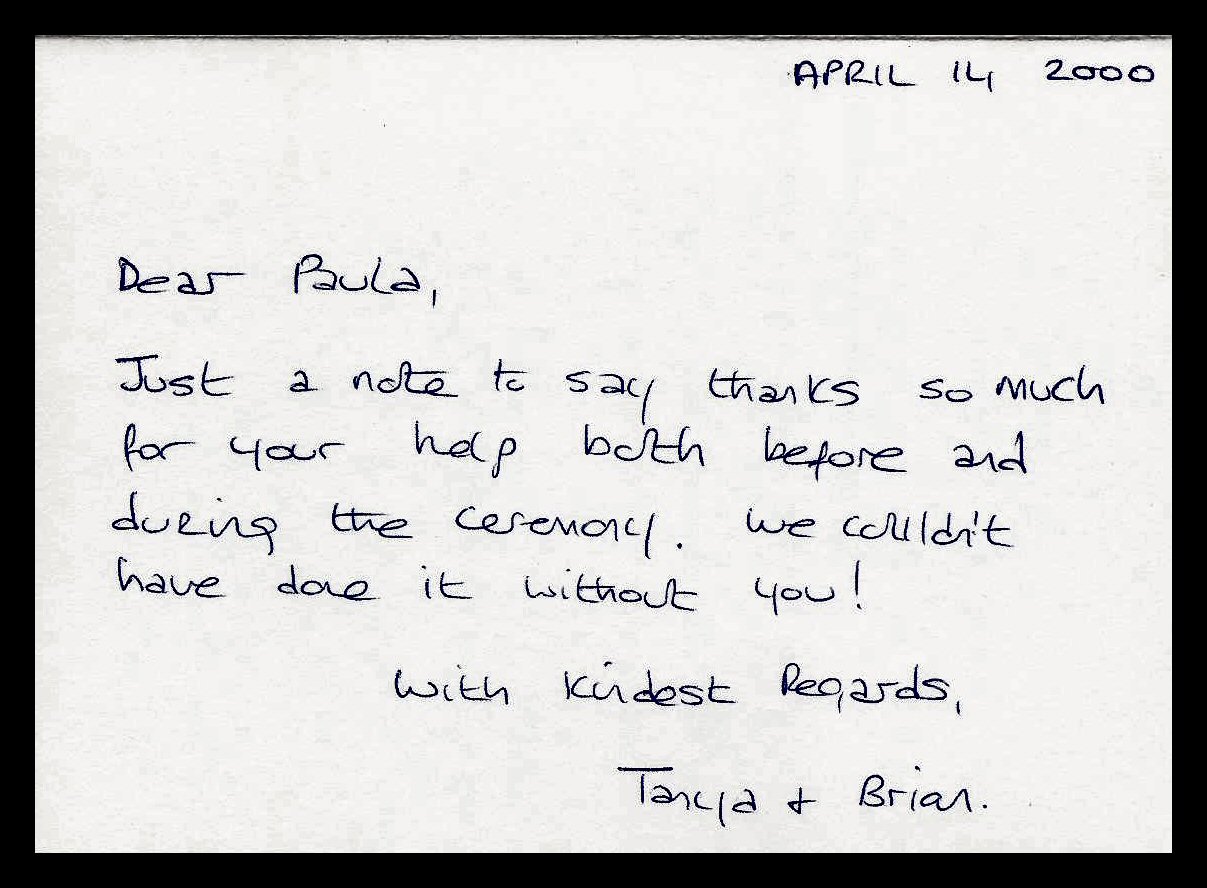 APRIL 14 2000
Dear Paula,
Just a note to say thanks so much
for your help both before and
during the ceremony. We couldn't
have done it without you!
With Kindest Regards,
Tanya + Brian.